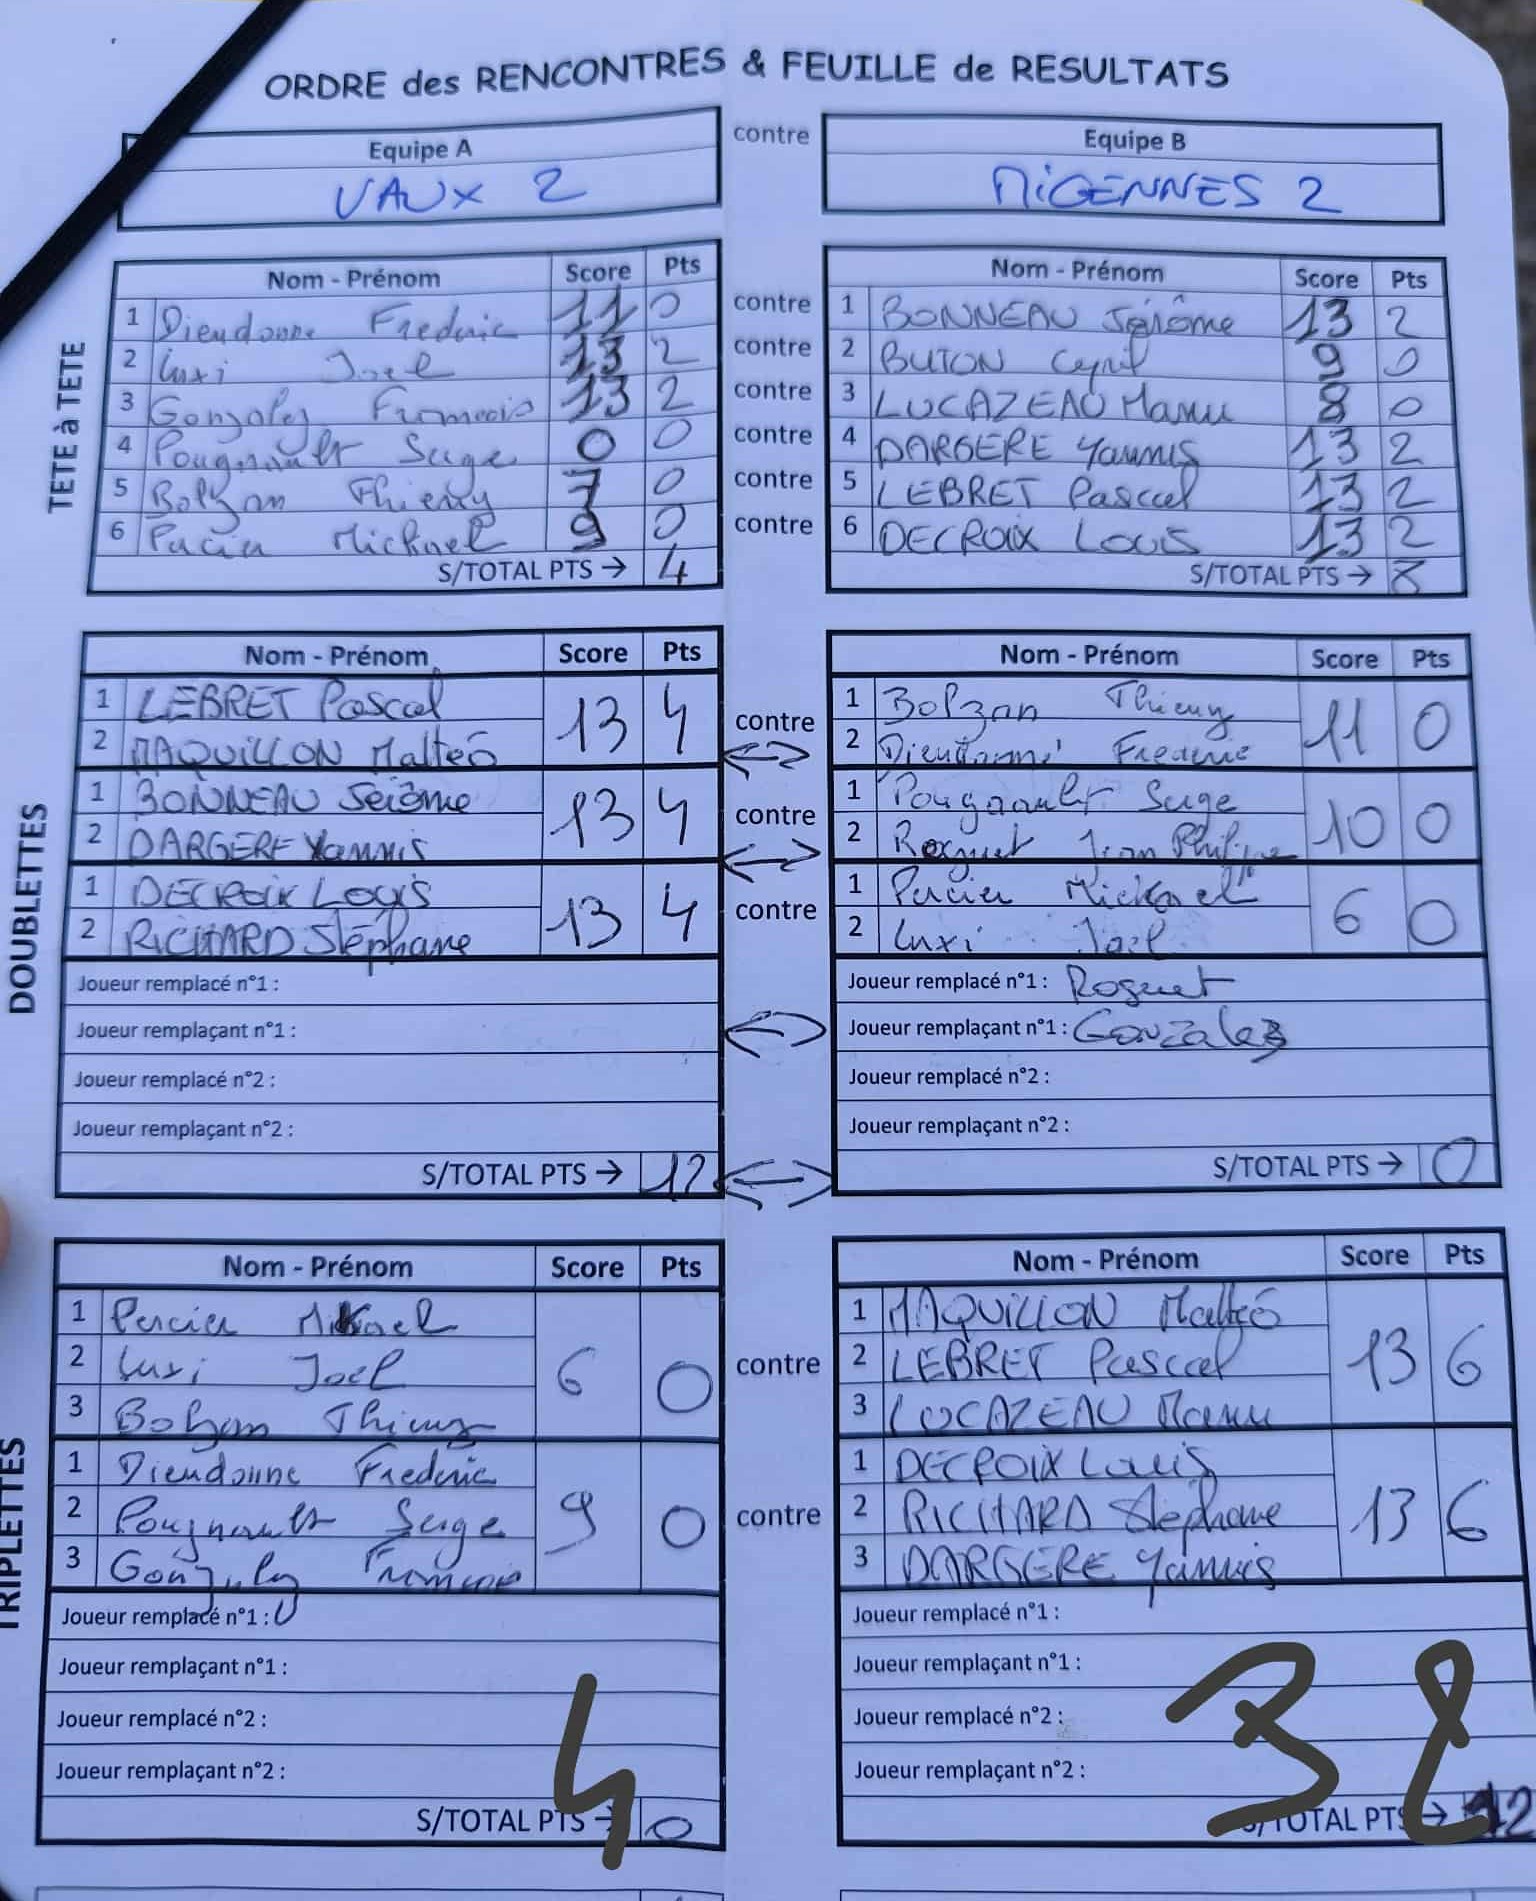 ORDRE des RENCONTRES & FEUILLE de RESULTATS
Equipe A contre Equipe B
VAUX 2 MIGENNES 2
TETE à TETE
Nom - Prénom Score Pts Nom - Prénom Score Pts
1 Dieudonne Frederic 11 0 contre 1 BONNEAU Jérôme 13 2
2 Luxi Joel 13 2 contre 2 BUTON Cyril 9 0
3 Gonzalez Francois 13 2 contre 3 LUCAZEAU Manu 8 0
4 Pougnault Serge 0 0 contre 4 DARGERE Yannis 13 2
5 Bolzan Thierry 7 0 contre 5 LEBRET Pascal 13 2
6 Percier Michael 9 0 contre 6 DECROIX Louis 13 2
S/TOTAL PTS → 4 S/TOTAL PTS → 8
DOUBLETTES
Nom - Prénom Score Pts Nom - Prénom Score Pts
1 LEBRET Pascal 13 4 contre 1 Bolzan Thierry 11 0
2 MAQUILLON Mattéo 2 Dieudonné Frederic
1 BONNEAU Jérôme 13 4 contre 1 Pougnault Serge 10 0
2 DARGERE Yannis 2 Roguet Jean Philippe
1 DECROIX Louis 13 4 contre 1 Percier Mickael 6 0
2 RICHARD Stéphane 2 Luxi Joel
Joueur remplacé n°1 : Joueur remplacé n°1 : Roguet
Joueur remplaçant n°1 : Joueur remplaçant n°1 : Gonzalez
Joueur remplacé n°2 : Joueur remplacé n°2 :
Joueur remplaçant n°2 : Joueur remplaçant n°2 :
S/TOTAL PTS → 12 S/TOTAL PTS → 0
TRIPLETTES
Nom - Prénom Score Pts Nom - Prénom Score Pts
1 Percier Mikael 6 0 contre 1 MAQUILLON Mattéo 13 6
2 Luxi Joël 2 LEBRET Pascal
3 Bolzan Thierry 3 LUCAZEAU Manu
1 Dieudonne Frederic 9 0 contre 1 DECROIX Louis 13 6
2 Pougnault Serge 2 RICHARD Stéphane
3 Gonzalez Francois 3 DARGERE Yannis
Joueur remplacé n°1 : Joueur remplacé n°1 :
Joueur remplaçant n°1 : Joueur remplaçant n°1 :
Joueur remplacé n°2 : Joueur remplacé n°2 :
Joueur remplaçant n°2 : Joueur remplaçant n°2 :
4 32
S/TOTAL PTS → 0 S/TOTAL PTS → 12